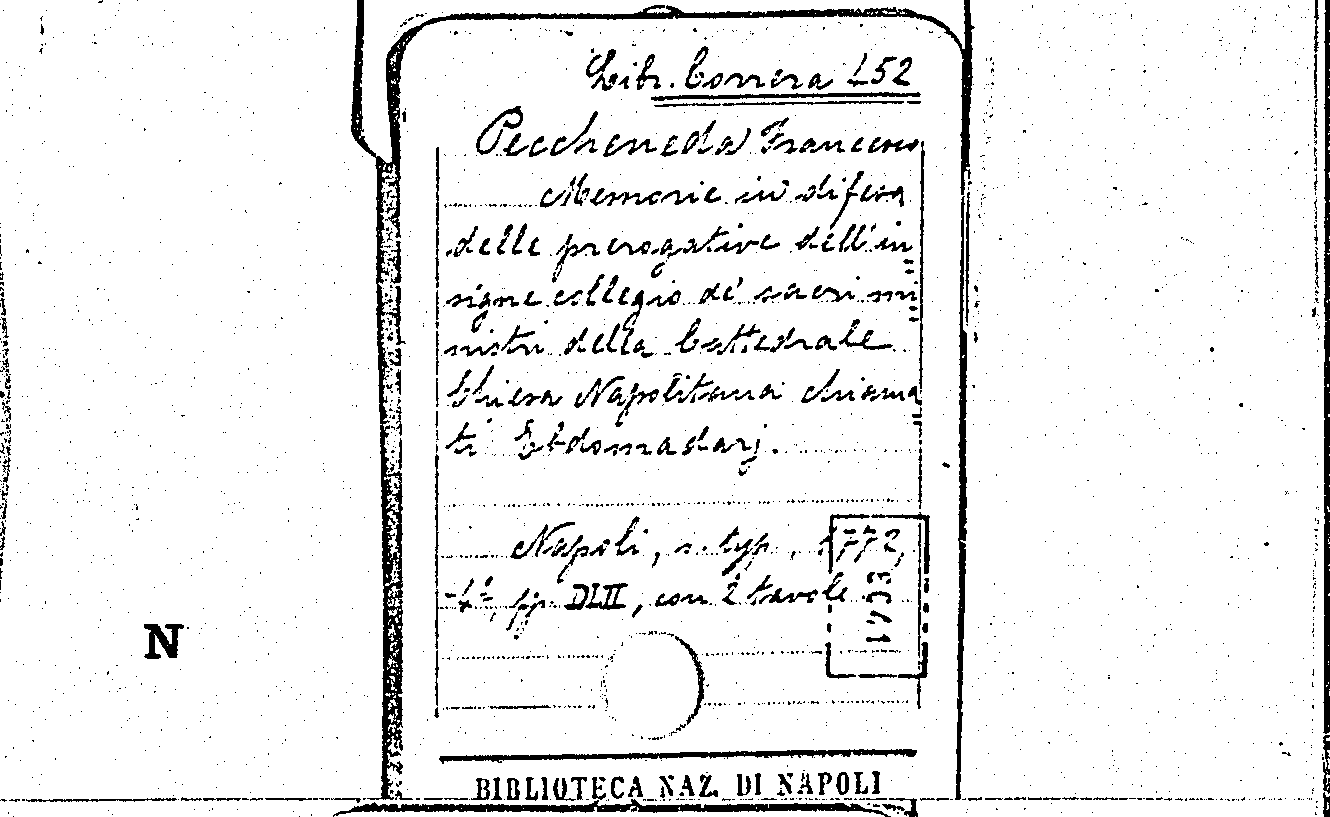 Libr. Correra 452
Peccheneda Francesco
Memorie in difesa
delle prerogative dell'in
signe collegio de' sacri mi
nistri della Cattedrale
Chiesa Napolitana chiama
ti Ebdomadarj.
Napoli, s. typ., 1772,
4º, pp. DLII, con 2 tavole
N
BIBLIOTECA NAZ. DI NAPOLI